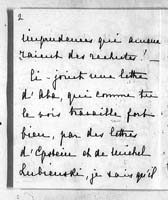 2
imprudences qui amène
raient des rechutes! —
Ci-joint une lettre
d'Abo, qui comme tu
le vois travaille fort
bien, par des lettres
d'Epstein et de Michel
Lubranski, je sais qu'il